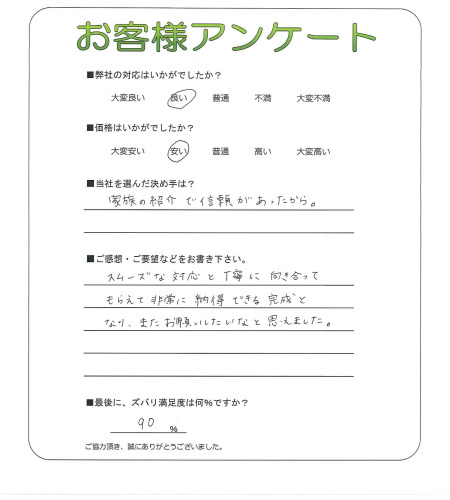 お客様アンケート
■弊社の対応はいかがでしたか？
大変良い 良い 普通 不満 大変不満
■価格はいかがでしたか？
大変安い 安い 普通 高い 大変高い
■当社を選んだ決め手は？
家族の紹介で信頼があったから。
■ご感想・ご要望などをお書き下さい。
スムーズな対応と丁寧に向き合って
もらえて非常に納得できる完成と
なり、またお願いしたいなと思えました。
■最後に、ズバリ満足度は何%ですか？
90 %
ご協力頂き、誠にありがとうございました。